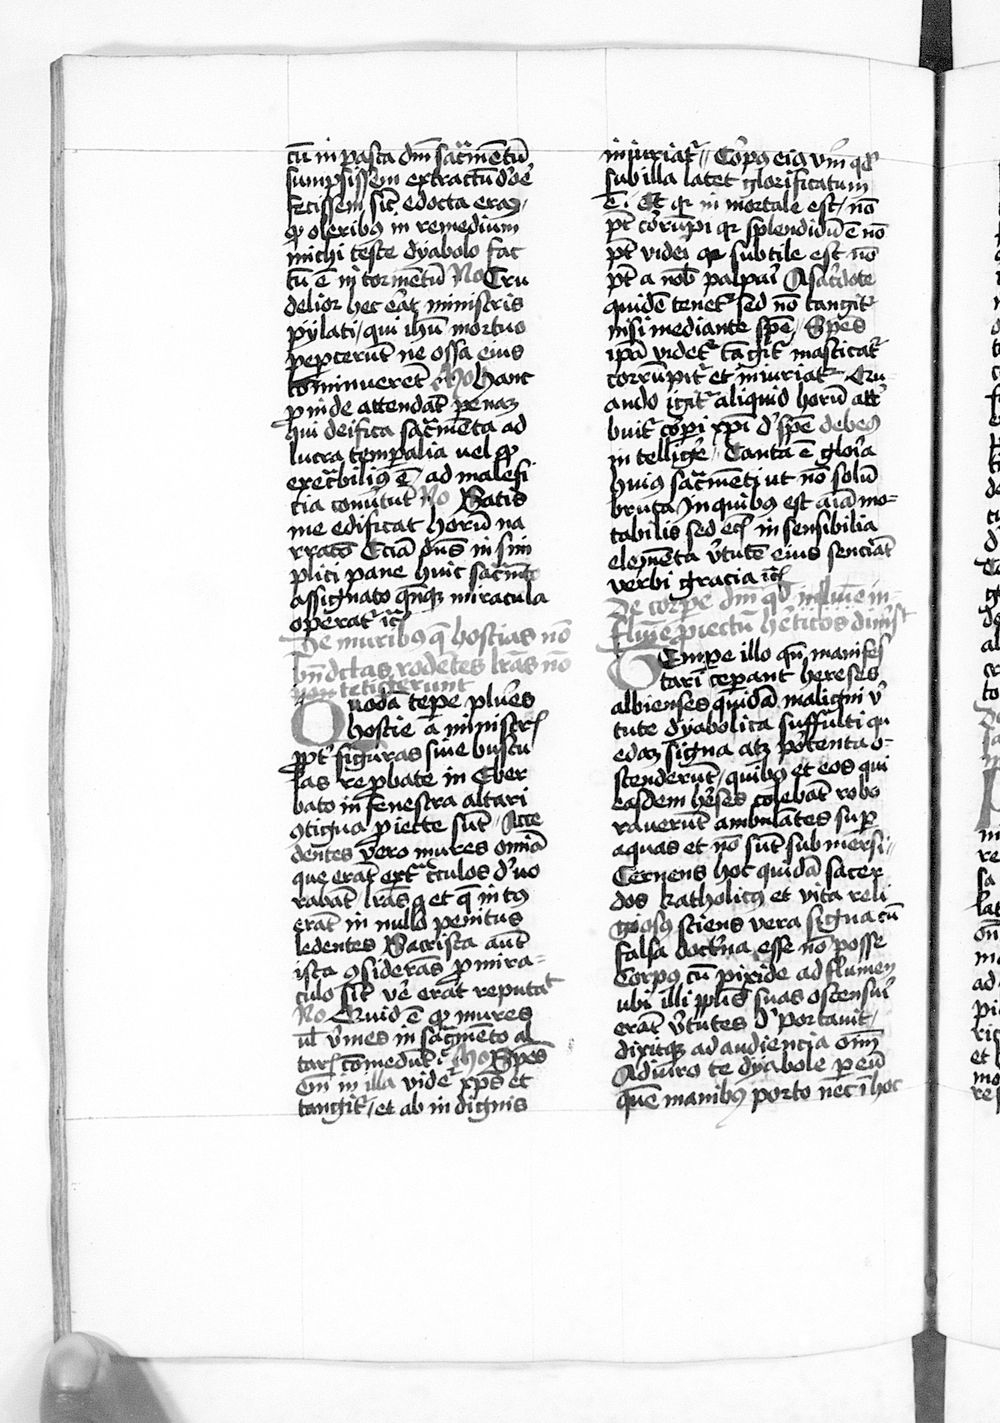 cū in pasca dn̄i sac̄mentū
sumpsissem extractū d' ore
fecissem sic̄ edocta eram,
qꝫ oleribꝰ in remedium
michi teste dyabolo fac
tū ē in tormentū No Cru
delior hec erat ministris
pylati, qui ihm̄ mortuo
peꝑcerūt ne ossa eius
cōminuerēt Mo Hanc
ꝓinde attendāt penam
qui deifica sac̄menta ad
lucra tempalia uel qꝫ
execrabiliꝰ ē, ad malefi
cia conūtūt No Satis
me edificat horū na
rracō Eciā dn̄s in sim
plici pane huic sac̄mēto
assignato qn̄qꝫ miracula
operat̄ ic̄
De muribꝰ q̄ hostias nō
bn̄dctas rodētes lrās nō
tetigerunt
Quodā tēpe plures
hostie a ministr̄
ꝓpt̄ figuras siue buscu
las reꝓbate in Eber
bato in fenestra altari
ꝯtigua ꝓiecte sūt, Acce
dentes vero mures omīa
que erāt ext̄ circulos d'uo
rabāt lrās qꝫ et q̄ intꝰ
erāt in nullo penitus
ledentes Sacrista aut̄
ista ꝯsiderās ꝓ mira-
culo sic̄ vē erat reputat
No Quid ē qꝫ mures
ul̄ v̄mes in sac̄mento al
taris comedūt? Mo Spēs
em̄ in illa videt̄ xpūs et
tangit̄, et ab indignis
iniuriat̄, Corpꝰ eiꝰ vm̄ qꝫ
sub illa latet glorificatum
ē. Et qꝛ inmortale est, nō
pt̄ corrūpi qꝛ splendidū ē nō
pt̄ videi qꝛ subtile est nō
pt̄ a nob palpai A sac̄dote
quidē tenet̄ sed nō tangit̄
nisi mediante spē, Spēs
ipā videt̄ tāgit̄ masticat̄
corrūpit̄ et iniuriat̄ Qu-
ando igit̄ aliquid horū att'
buit̄ corpi xpi d' spē debes
intellige, Tanta ē gloria
huiꝰ sac̄menti ut nō solū
bruta in quibꝰ est aīa mo-
tabilis sed ec̄ insensibilia
elemēta v̄tutē eius senciāt
verbi gracia ic̄
De corpe dn̄i qd̄ in flumē in-
ꝓiectū h̄eticos dimsit
Tempe illo qn̄ manifes
tari ceperant hereses
albienses quidā maligni v̄
tute dyabolica suffulti qu
edam signa atqꝫ portenta o-
stenderūt, quibꝰ et eos qui
easdem h̄eses colebāt robo
rauerūt ambulātes sup
aquas et nō sūt submersi,
Cernens hoc quidā sacer
dos katholicꝰ et vita reli
giosus sciens vera signa cū
falsa doctrina esse nō posse
Corpus cū pixide ad flumen
ubi illi pplis suas ostensuri
erāt v̄tutes d'portauit,
dixitqꝫ ad audiencia oīm
Adiuro te dyabole ꝑ eū
quē manibꝰ porto ne ī hoc